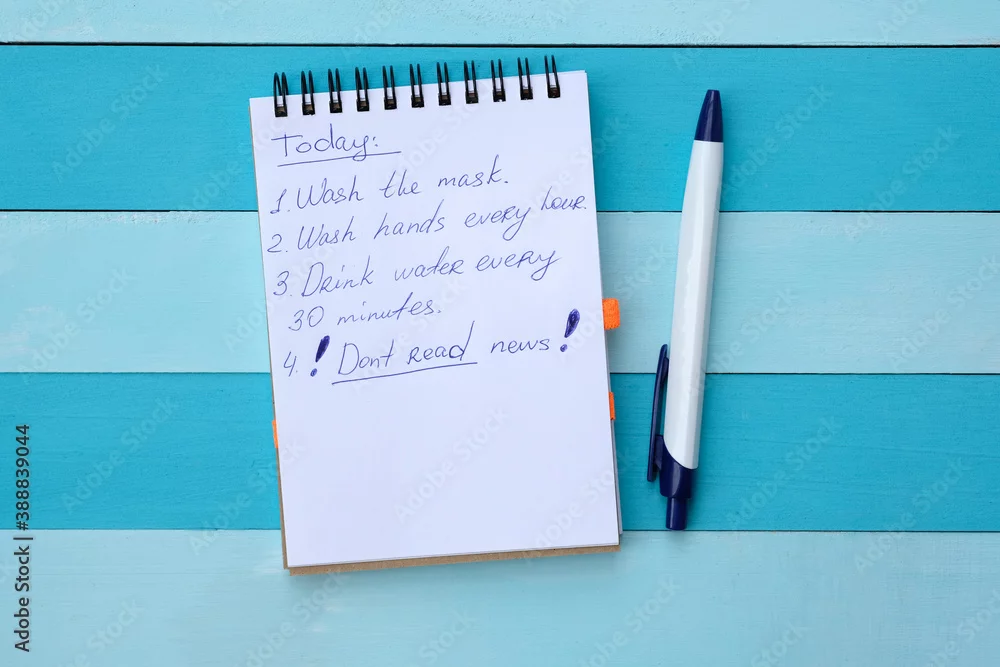 Today:
1. Wash the mask.
2. Wash hands every hour.
3. Drink water every
30 minutes.
4. ! Dont read news !
Adobe Stock | #388839044